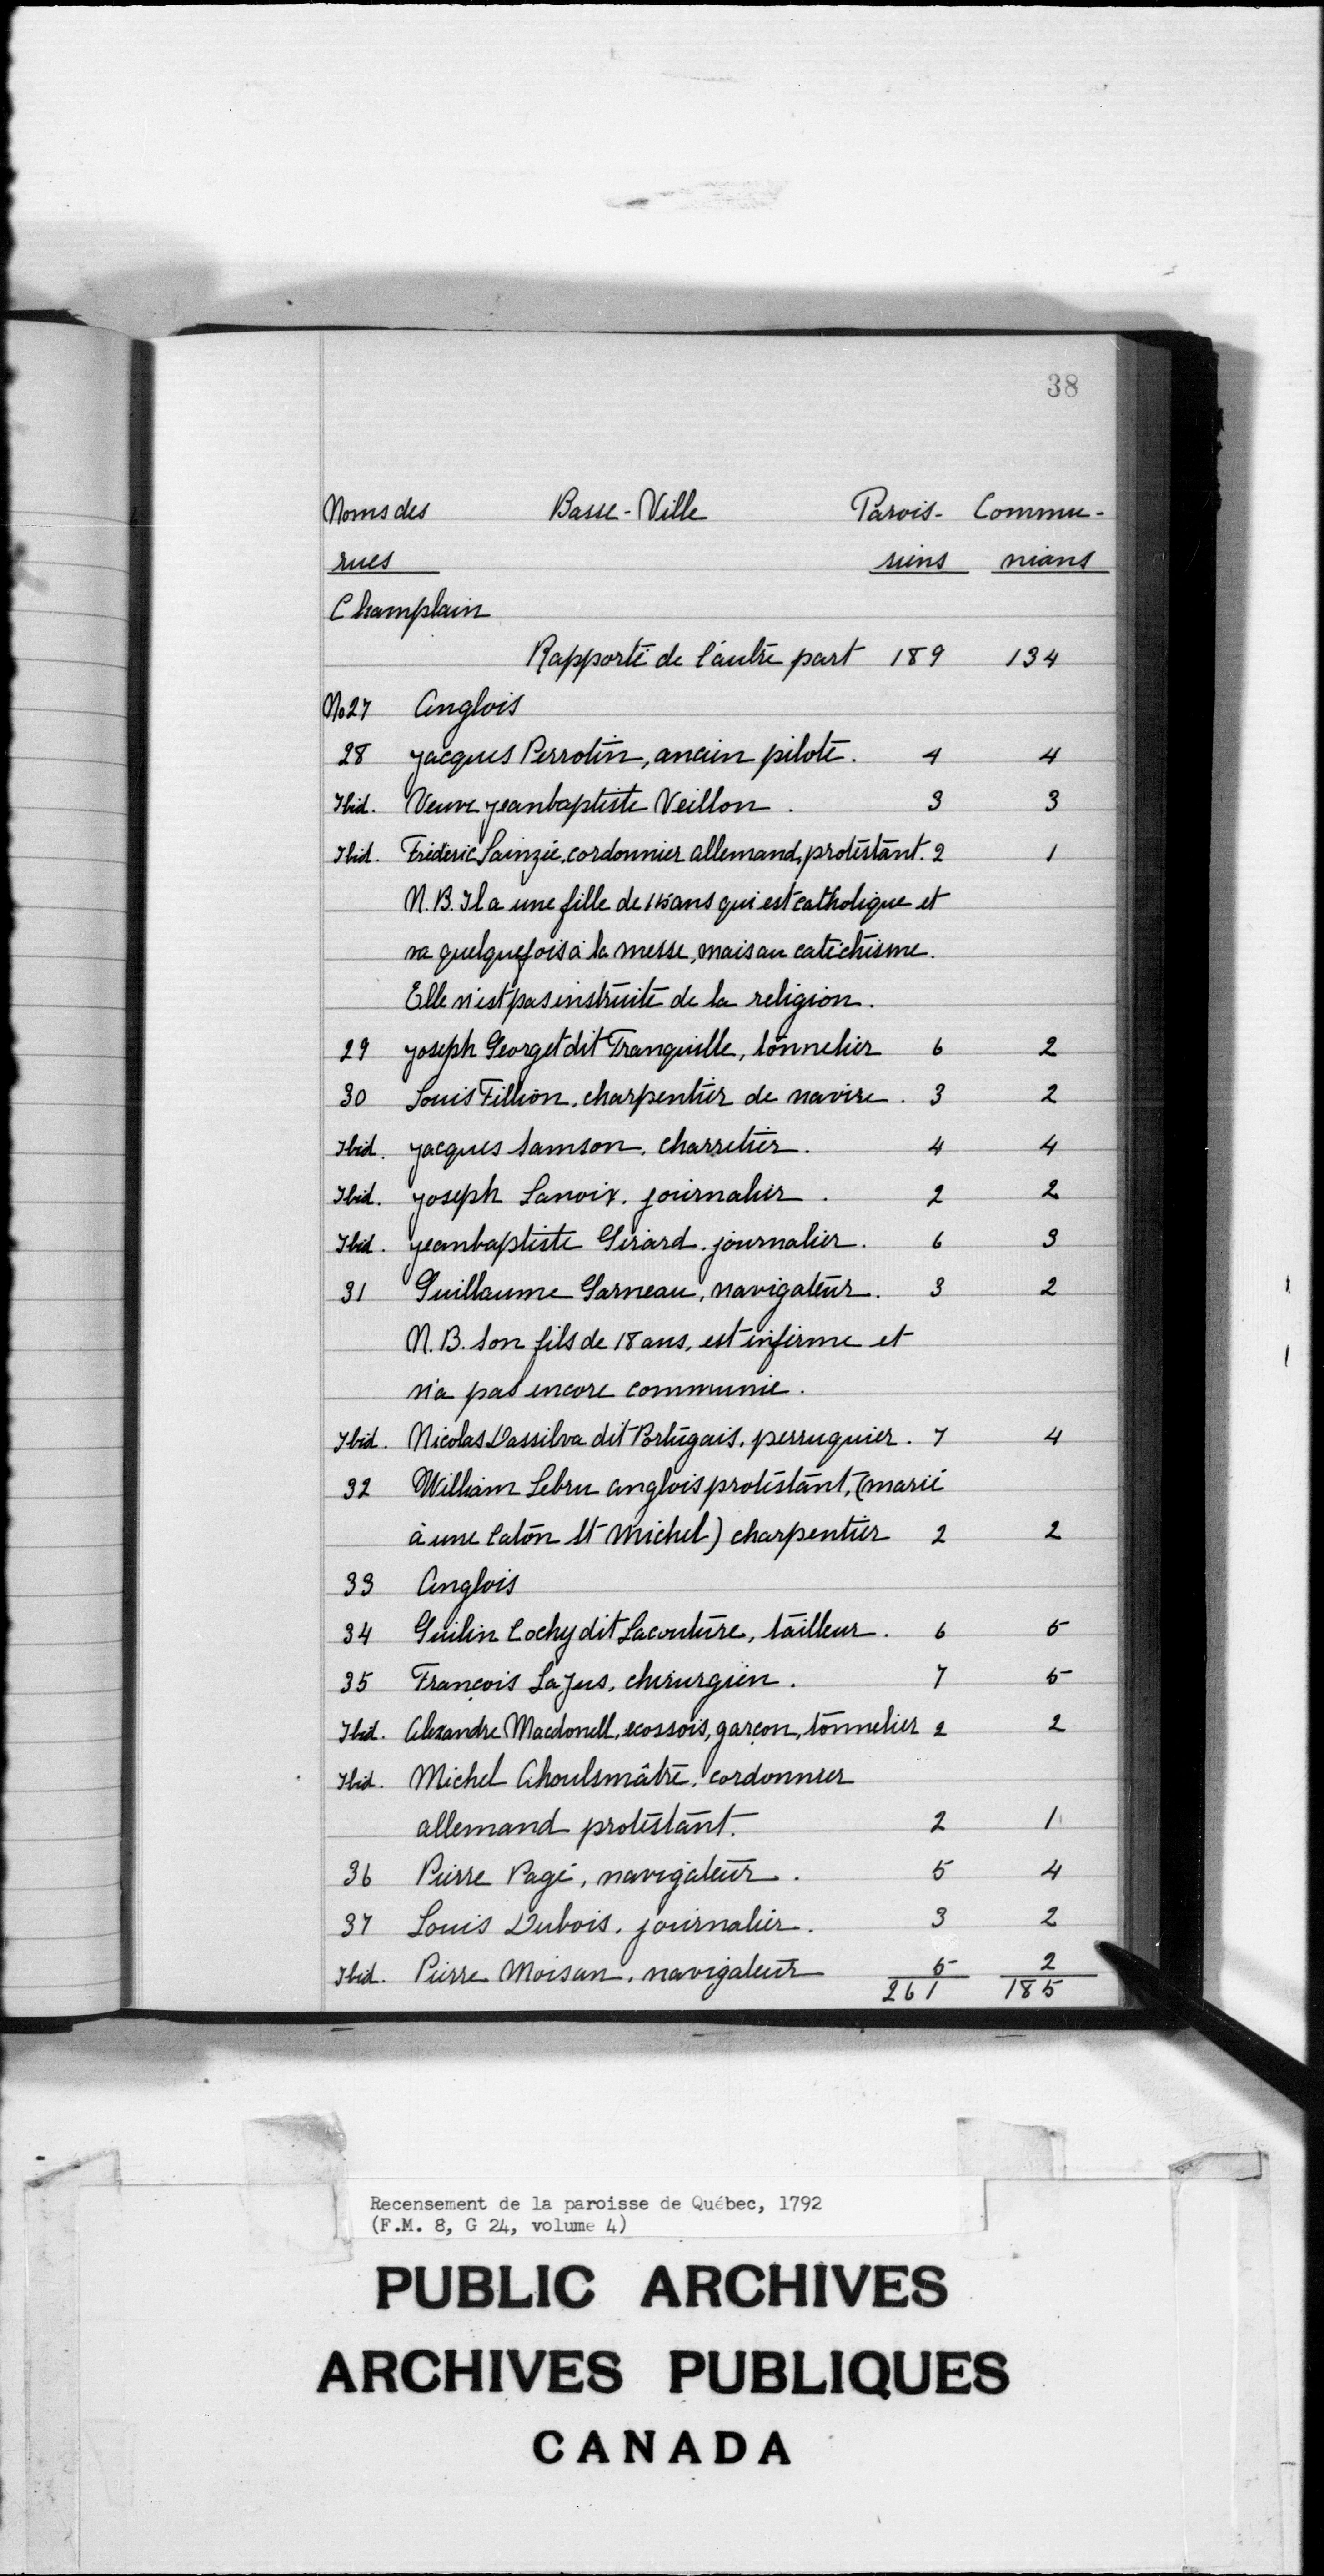 38
Noms des Basse-Ville Parois- Commu-
rues siens nians
Champlain
Rapporté de l'autre part 189 134
No 27 Anglois
28 Jacques Perrotin, ancien pilote. 4 4
Ibid. Veuve jeanbaptiste Veillon. 3 3
Ibid. Frédéric Sainzié, cordonnier allemand, protestant. 2 1
N.B. Il a une fille de ans qui est catholique et
va quelquefois à la messe, mais au catéchisme.
Elle n'est pas instruite de la religion.
29 Joseph Georget dit Tranquille, tonnelier 6 2
30 Louis Fillion, charpentier de navire. 3 2
Ibid. Jacques Samson, charretier. 4 4
Ibid. Joseph Lanoix, journalier. 2 2
Ibid. jeanbaptiste Girard, journalier. 6 3
31 Guillaume Garneau, navigateur. 3 2
N.B. Son fils de 18 ans, est infirme et
n'a pas encore communié.
Ibid. Nicolas Dassilva dit Portugais, perruquier. 7 4
32 William Lebru anglois protestant, (marié
à une Caton St Michel) charpentier 2 2
33 Anglois
34 Guilin Cochy dit Lacouture, tailleur. 6 5
35 François LaJus, chirurgien. 7 5
Ibid. Alexandre Macdonell, ecossois, garçon, tonnelier 2 2
Ibid. Michel Ahoulsmâtre, cordonnier
allemand protestant. 2 1
36 Pierre Pagé, navigateur. 5 4
37 Louis Dubois, journalier. 3 2
Ibid. Pierre Moisan, navigateur 5 2
261 185
Recensement de la paroisse de Québec, 1792
(F.M. 8, G 24, volume 4)
PUBLIC ARCHIVES
ARCHIVES PUBLIQUES
CANADA